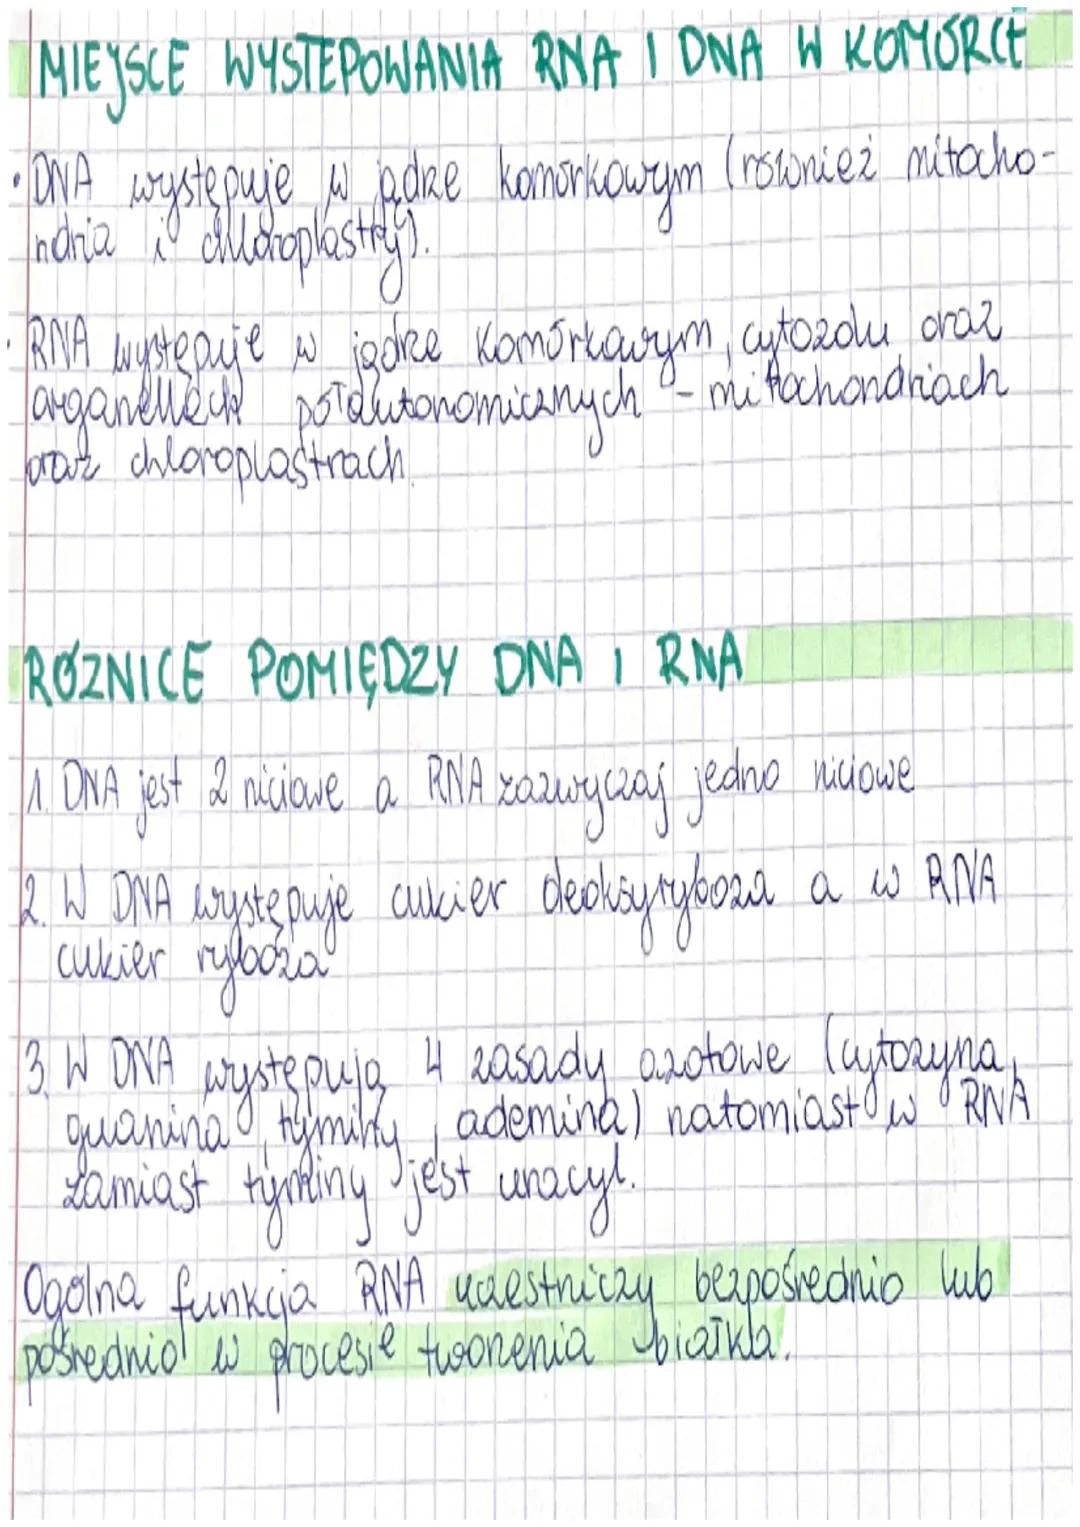 MIEJSCE WYSTEPOWANIA RNA I DNA W KOMÓRCE
• DNA występuje w jądrze komórkowym (również mitocho-
ndria i chloroplastry).
• RNA występuje w jądrze komórkowym, cytozolu oraz
organellach półautonomicznych - mitochondriach
oraz chloroplastrach.
RÓŻNICE POMIĘDZY DNA I RNA
1. DNA jest 2 niciowe a RNA zazwyczaj jedno niciowe
2. W DNA występuje cukier deoksyryboza a w RNA
cukier ryboza
3. W DNA występują 4 zasady azotowe (cytozyna,
guanina, tyminy, ademina) natomiast w RNA
zamiast tyminy jest uracyl.
Ogólna funkcja RNA uczestniczy bezpośrednio lub
pośrednio w procesie tworzenia białka.